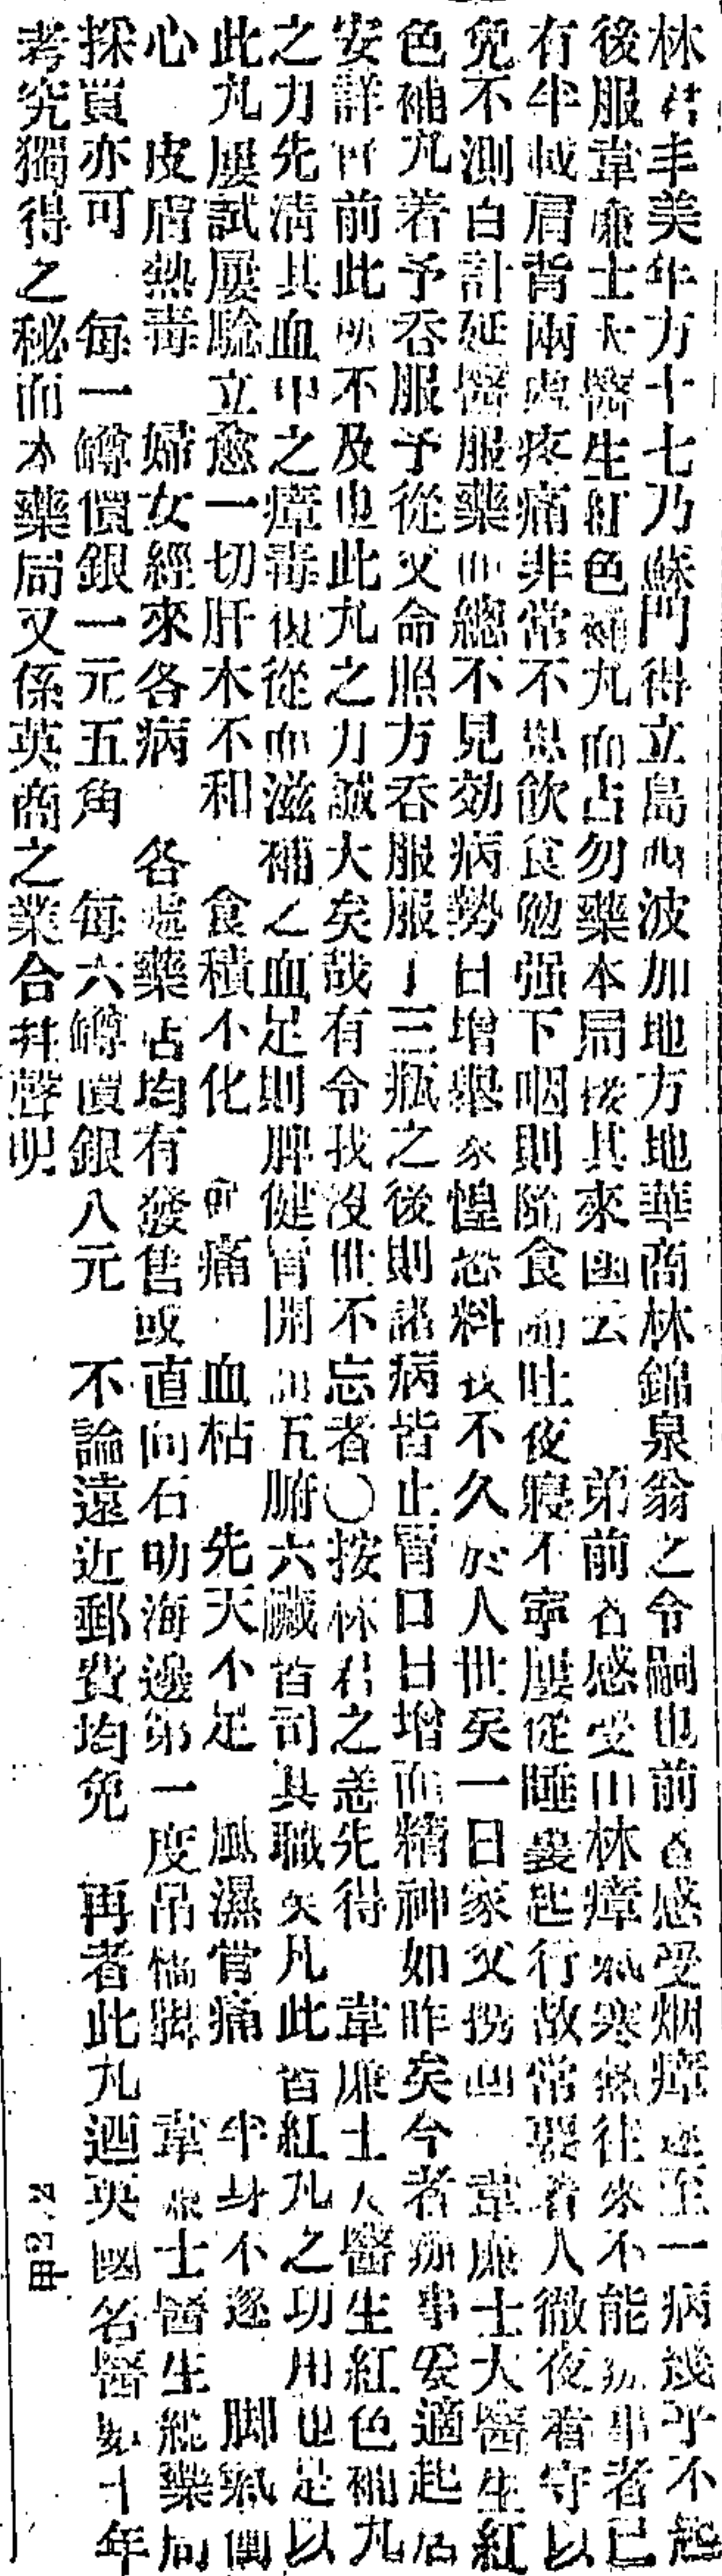 林君丰美年方十七乃蘇門得立島西波加地方地華商林錦泉翁之令嗣也前者感受烟瘴迷至一病幾乎不起
後服韋廉士大醫生紅色補丸而占勿藥本局接其來函云 弟前者感受山林瘴氣寒熱往來不能辦事者已
有半載肩背兩處疼痛非常不思飲食勉强下咽則隨食而吐夜寢不寧屢從睡裏起行故常要着人徹夜看守以
免不測白計延醫服藥而總不見効病勢日增舉家惶恐料我不久於人世矣一日家父携回 韋廉士大醫生紅
色補丸着予吞服予從父命照方吞服服了三瓶之後則諸病皆止胃口日增而精神如昨矣今者辦事安適起居
安詳實前此所不及也此丸之力誠大矣哉有令我沒世不忘者○按林君之恙先得 韋廉士大醫生紅色補丸
之力先清其血中之瘴毒復從而滋補之血足則脾健胃開而五腑六臟皆司其職矣凡此皆紅丸之功用也足以
此丸屢試屢驗立愈一切肝木不和 食積不化 胃痛 血枯 先天不足 風濕骨痛 半身不遂 脚氣衝
心 皮膚熱毒 婦女經來各病 各處藥店均有發售或直向石叻海邊第一度吊橋脚 韋廉士醫生總藥局
採買亦可 每一罇價銀一元五角 每六罇價銀八元 不論遠近郵費均免 再者此丸迺英國名醫數十年
考究獨得之秘而本藥局又係英商之業合幷聲明